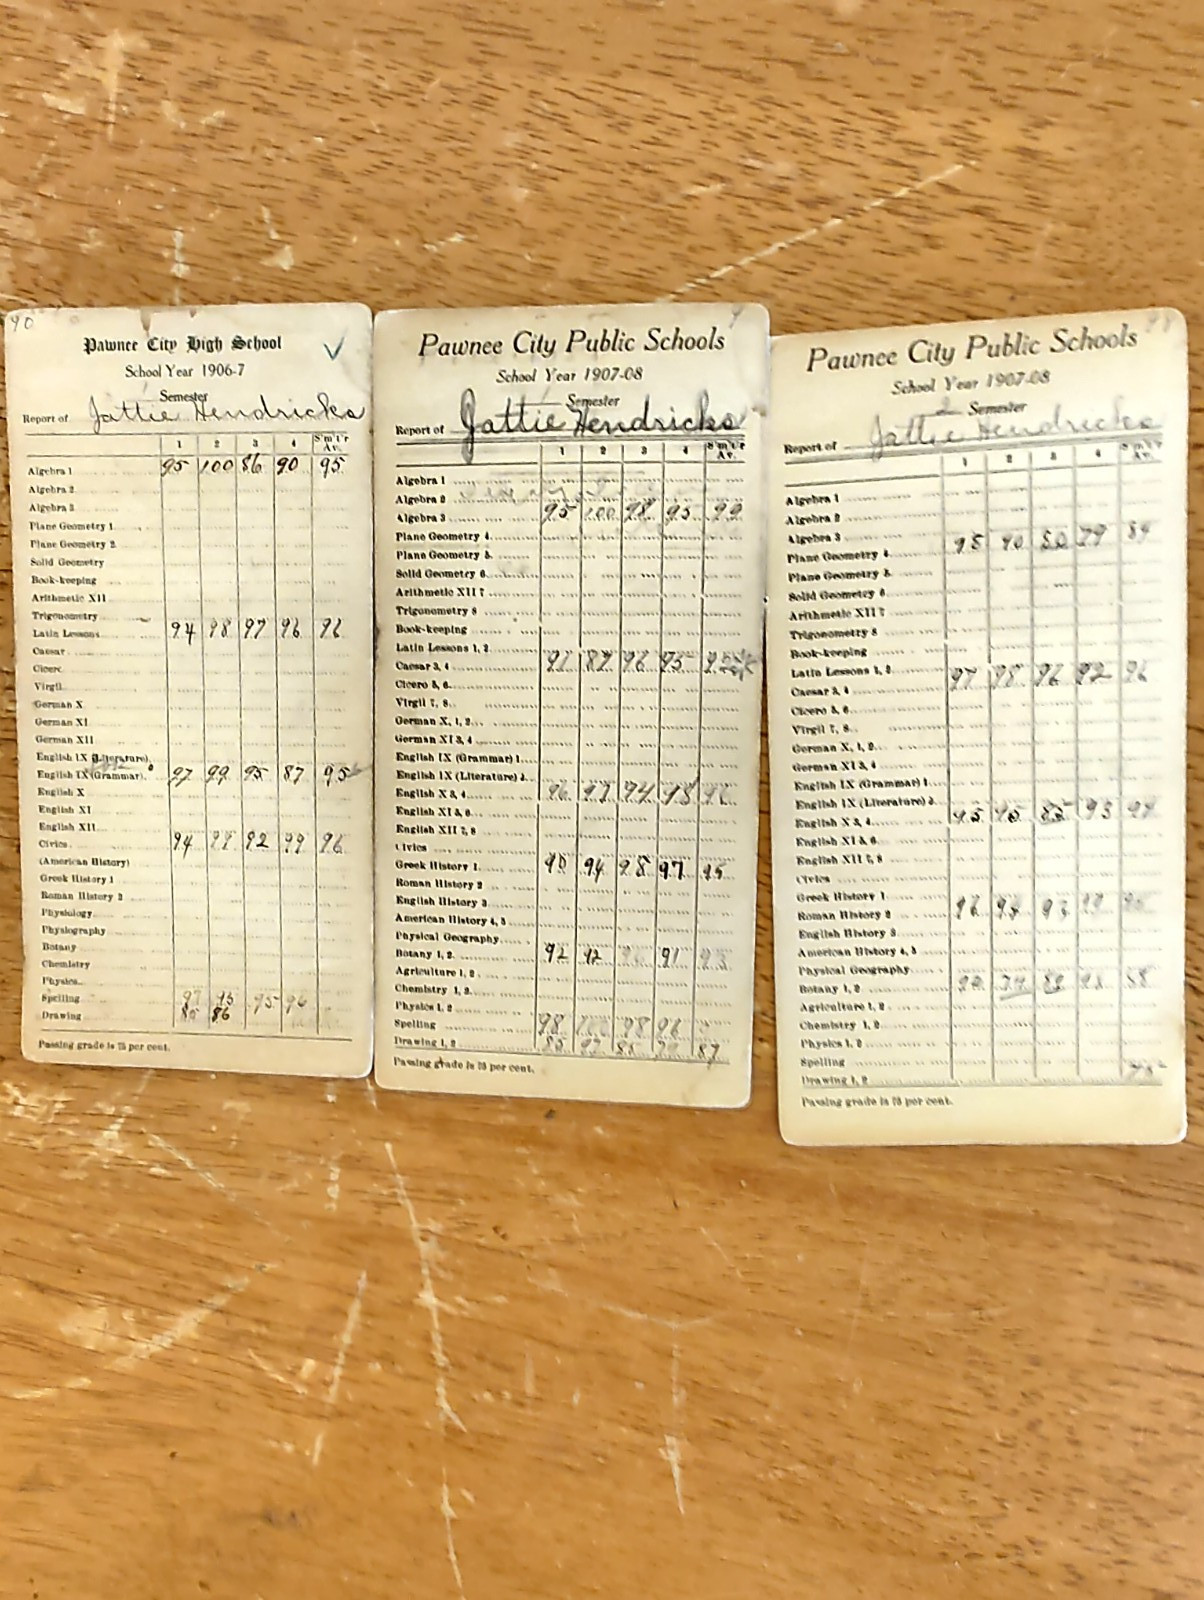 90
Pawnee City High School
School Year 1906-7
Semester
Report of Jattie Hendricks
1 2 3 4 Sm't'r Av.
Algebra 1 95 100 86 90 95
Algebra 2
Algebra 3
Plane Geometry 1
Plane Geometry 2
Solid Geometry
Book-keeping
Arithmetic XII
Trigonometry
Latin Lessons 94 98 97 96 96
Caesar
Cicero
Virgil
German X
German XI
German XII
English IX (Literature)
English IX (Grammar) 97 99 95 87 95
English X
English XI
English XII
Civics 94 99 92 99 96
(American History)
Greek History 1
Roman History 2
Physiology
Physiography
Botany
Chemistry
Physics
Spelling 97 95 95 96
Drawing 85 86
Passing grade is 75 per cent.
Pawnee City Public Schools
School Year 1907-08
Semester
Report of Jattie Hendricks
1 2 3 4 Sm't'r Av.
Algebra 1
Algebra 2
Algebra 3 95 100 98 95 99
Plane Geometry 4
Plane Geometry 5
Solid Geometry 6
Arithmetic XII 7
Trigonometry 8
Book-keeping
Latin Lessons 1, 2
Caesar 3, 4 91 87 96 95
Cicero 5, 6
Virgil 7, 8
German X, 1, 2
German XI 3, 4
English IX (Grammar) 1
English IX (Literature) 2
English X 3, 4 96 97 94 98
English XI 5 & 6
English XII 7, 8
Civics
Greek History 1 90 94 98 97 95
Roman History 2
English History 3
American History 4, 5
Physical Geography
Botany 1, 2 92 92 91 93
Agriculture 1, 2
Chemistry 1, 2
Physics 1, 2
Spelling 98 100 98 96
Drawing 1, 2 85 97 88 87
Passing grade is 75 per cent.
Pawnee City Public Schools
School Year 1907-08
2 Semester
Report of Jattie Hendricks
1 2 3 4 Sm't'r Av.
Algebra 1
Algebra 2
Algebra 3
Plane Geometry 4 95 90 80 79 89
Plane Geometry 5
Solid Geometry 6
Arithmetic XII 7
Trigonometry 8
Book-keeping
Latin Lessons 1, 2
Caesar 3, 4 97 98 96 92 96
Cicero 5, 6
Virgil 7, 8
German X, 1, 2
German XI 3, 4
English IX (Grammar) 1
English IX (Literature) 2
English X 3, 4 95 95 85 93 94
English XI 5 & 6
English XII 7, 8
Civics
Greek History 1
Roman History 2 96 94 93 99
English History 3
American History 4, 5
Physical Geography
Botany 1, 2 90 79 82 93 88
Agriculture 1, 2
Chemistry 1, 2
Physics 1, 2
Spelling
Drawing 1, 2
Passing grade is 75 per cent.